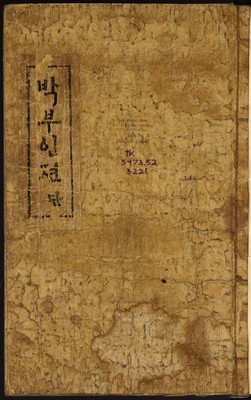 박부인젼 단
TK
5973.52
3221